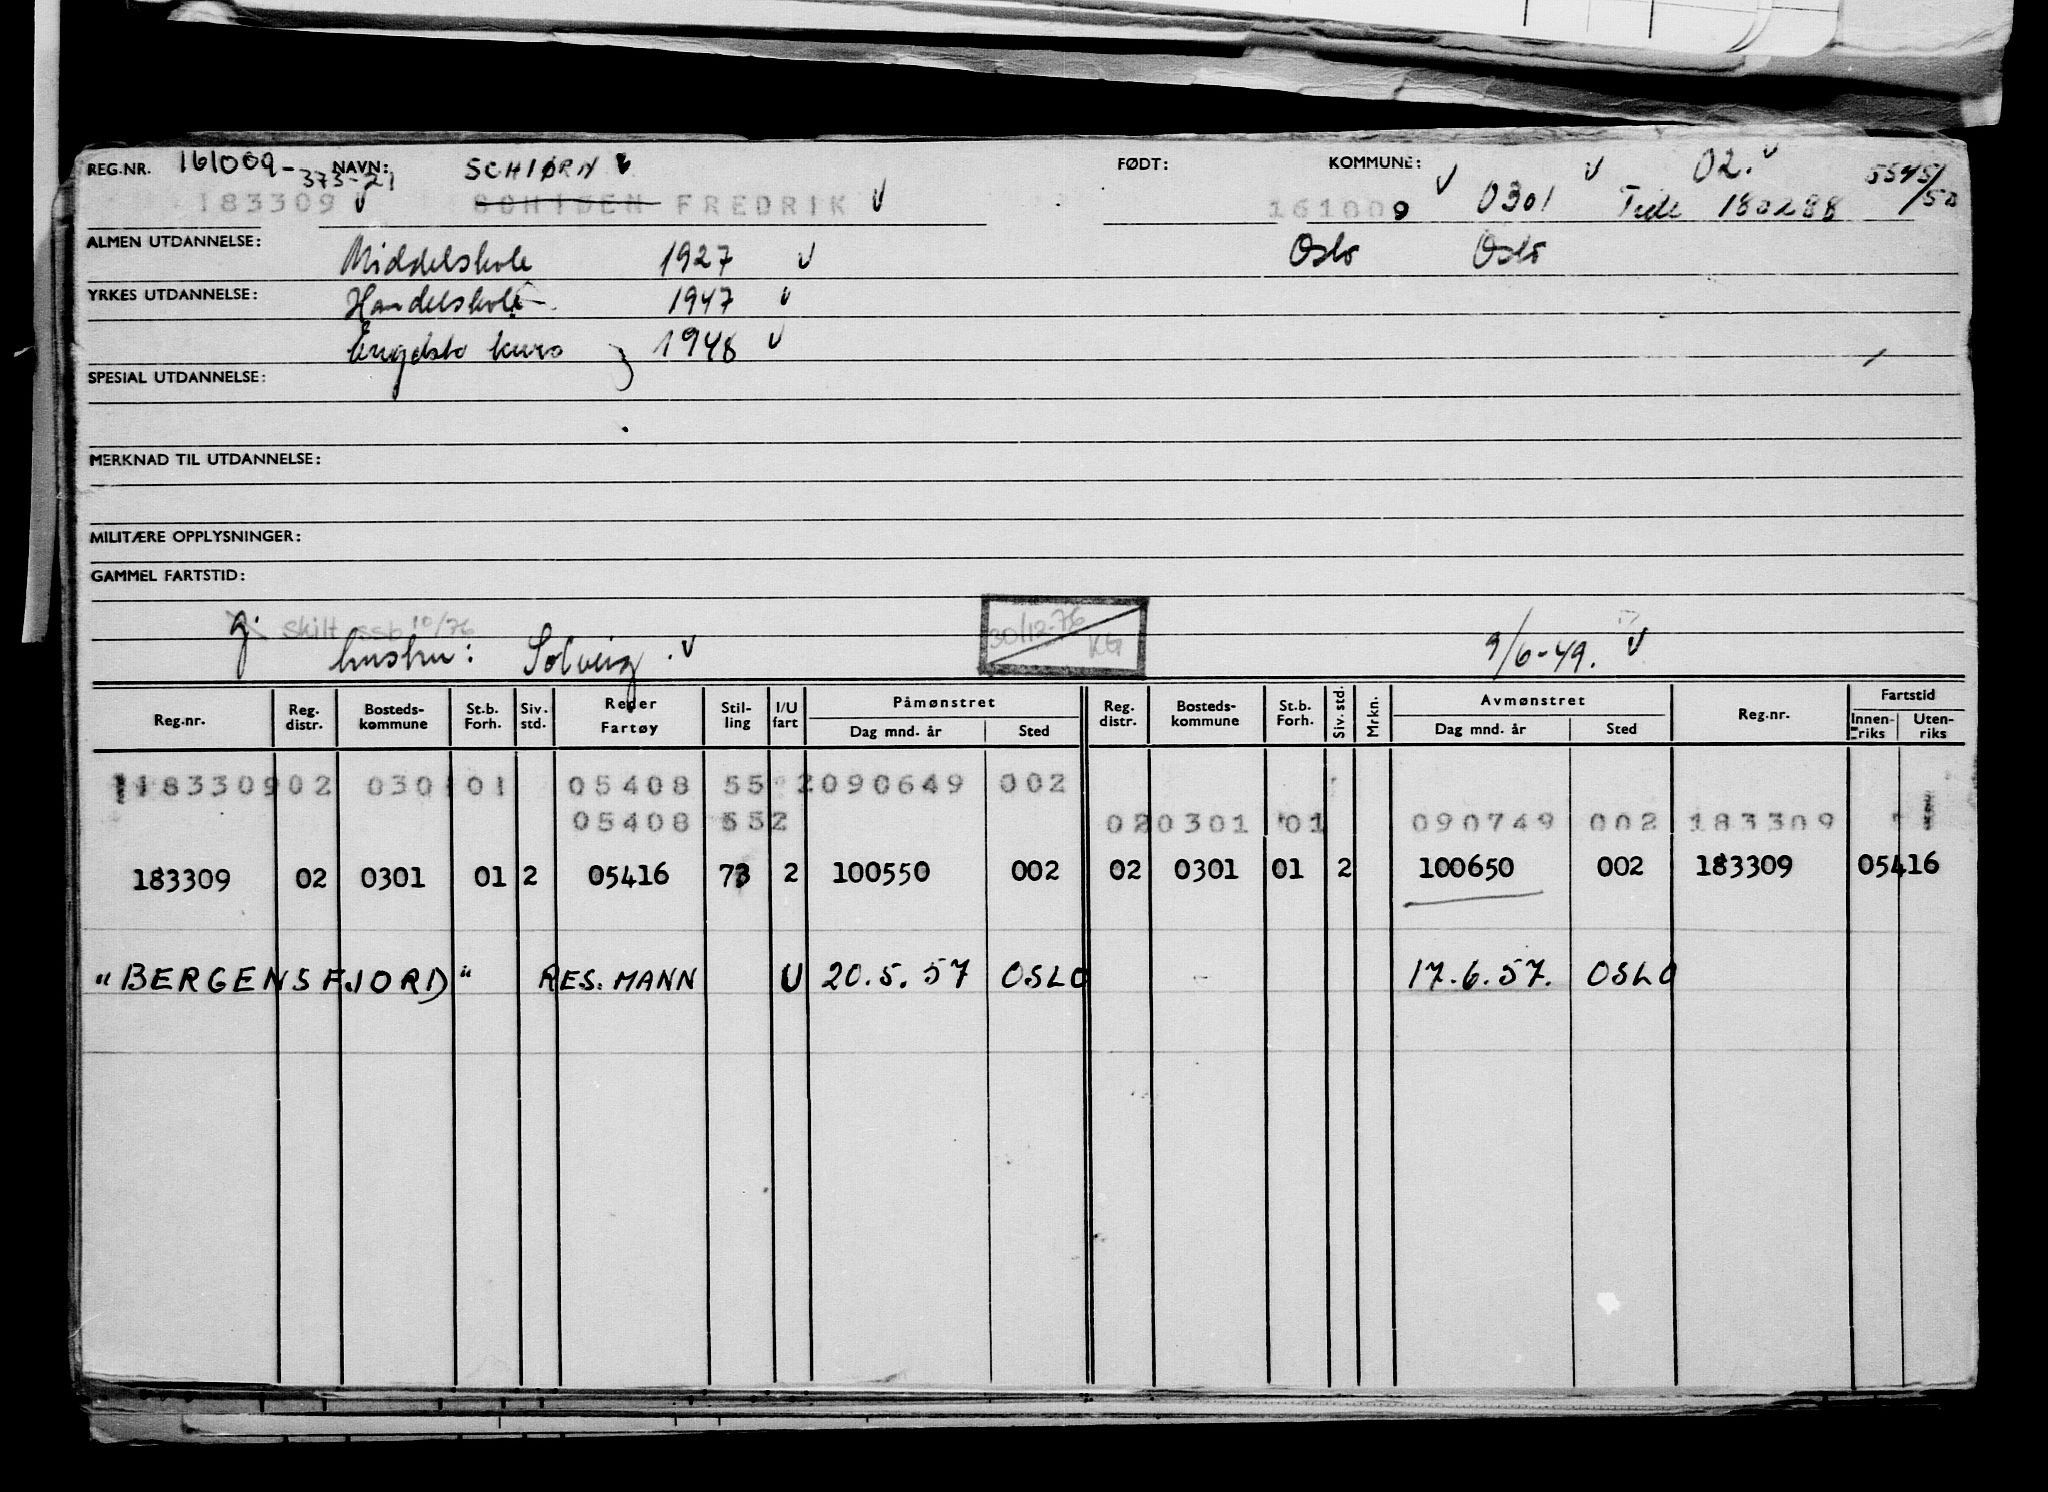 REG.NR. 161009-37321 NAVN: SCHIØRN FØDT: KOMMUNE: 02. 5545/50
183309 SCHIØEN FREDRIK 161009 0301 180288
ALMEN UTDANNELSE: Middelskole 1927 Oslo Oslo
YRKES UTDANNELSE: Handelskole 1947
Engelsk kurs 1948
SPESIAL UTDANNELSE:
MERKNAD TIL UTDANNELSE:
MILITÆRE OPPLYSNINGER:
GAMMEL FARTSTID:
g. skilt ssb 10/76 30/12-76 KG
hustru: Solveig 9/6-49.
Reg.nr. Reg. distr. Bosteds- kommune St.b. Forh. Siv. std. Reder Fartøy Stil- ling I/U fart Påmønstret Dag mnd. år Sted Reg. distr. Bosteds- kommune St.b. Forh. Siv. std. Mrkn. Avmønstret Dag mnd. år Sted Reg.nr. Fartstid Innen- riks Uten- riks
183309 02 030 01 05408 55 2 090649 002
05408 552 02 0301 01 090749 002 183309
183309 02 0301 01 2 05416 73 2 100550 002 02 0301 01 2 100650 002 183309 05416
"BERGENSFJORD" RES. MANN U 20.5.57 OSLO 17.6.57. OSLO